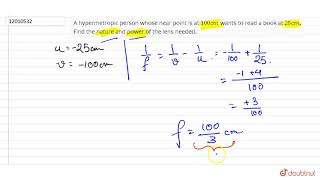 12010532
A hypermetropic person whose near point is at 100cm wants to read a book at 25cm.
Find the nature and power of the lens needed.
u = -25cm
v = -100cm
1/f = 1/v - 1/u = -1/100 + 1/25
= -1+4/100
= +3/100
f = 100/3 cm
doubtnut